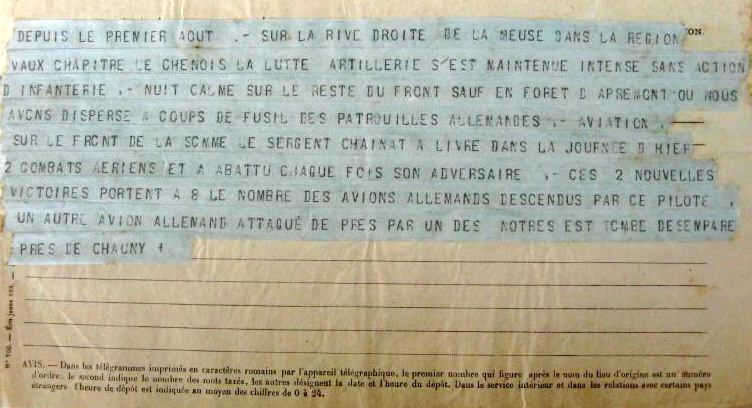 DEPUIS LE PREMIER AOUT .- SUR LA RIVE DROITE DE LA MEUSE DANS LA REGION
VAUX CHAPITRE LE CHENOIS LA LUTTE ARTILLERIE S'EST MAINTENUE INTENSE SANS ACTION
D INFANTERIE .- NUIT CALME SUR LE RESTE DU FRONT SAUF EN FORET D APREMONT OU NOUS
AVONS DISPERSE A COUPS DE FUSIL DES PATROUILLES ALLEMANDES .- AVIATION .-
SUR LE FRONT DE LA SOMME LE SERGENT CHAINAT A LIVRE DANS LA JOURNEE D HIER
2 COMBATS AERIENS ET A ABATTU CHAQUE FOIS SON ADVERSAIRE .- CES 2 NOUVELLES
VICTOIRES PORTENT A 8 LE NOMBRE DES AVIONS ALLEMANDS DESCENDUS PAR CE PILOTE .
UN AUTRE AVION ALLEMAND ATTAQUÉ DE PRES PAR UN DES NOTRES EST TOMBE DESEMPARE
PRES DE CHAUNY
AVIS. — Dans les télégrammes imprimés en caractères romains par l'appareil télégraphique, le premier nombre qui figure après le nom du lieu d'origine est un numéro
d'ordre, le second indique le nombre des mots taxés, les autres désignent la date et l'heure du dépôt. Dans le service intérieur et dans les relations avec certains pays
étrangers l'heure de dépôt est indiquée au moyen des chiffres de 0 à 24.